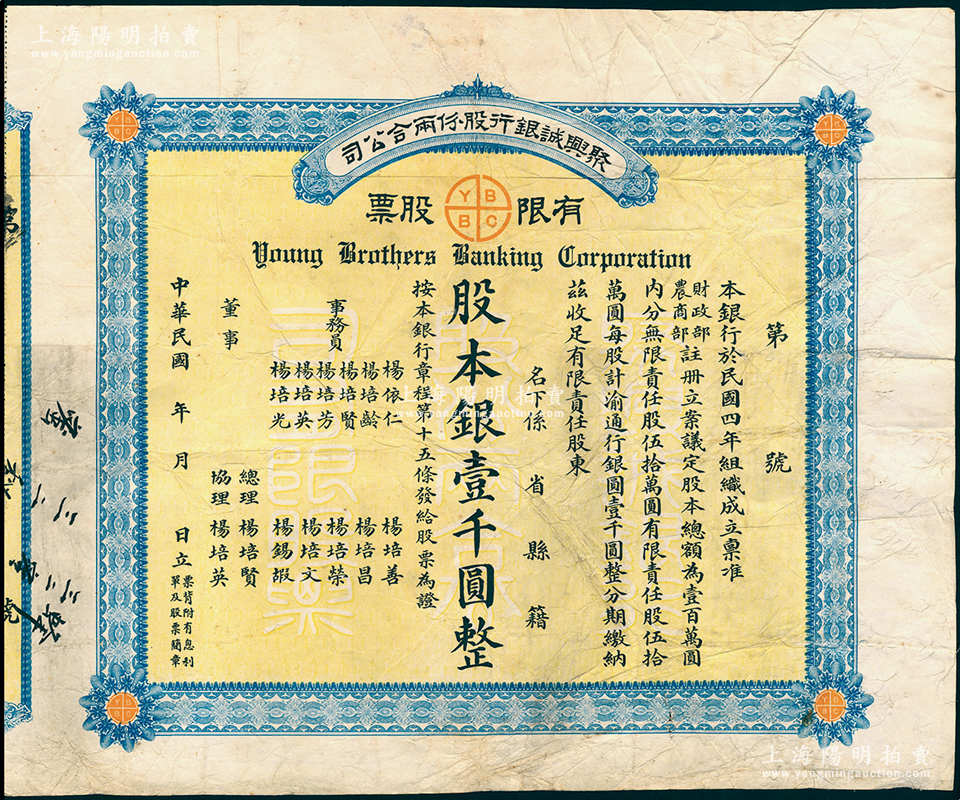 上海陽明拍賣
www.yangmingauction.com
聚興誠銀行股份兩合公司
有限 股票
YBBC
Young Brothers Banking Corporation
第 號
本銀行於民國四年組織成立稟准
財政部
農商部
註册立案議定股本總額為壹百萬圓
内分無限責任股伍拾萬圓有限責任股伍拾
萬圓每股計渝通行銀圓壹千圓整分期繳納
茲收足有限責任股東
名下係 省 縣 籍
股本銀壹千圓整
按本銀行章程第十五條發給股票為證
事務員
楊依仁 楊培善
楊培齡 楊培昌
楊培賢 楊培榮
楊培芳 楊培文
楊培英 楊錫嘏
楊培光
董事
總理 楊培賢
協理 楊培英
中華民國 年 月 日立
票背附有息利
單及股票簡章
上海陽明拍賣
www.yangmingauction.com
上海陽明拍賣
www.yangmingauction.com